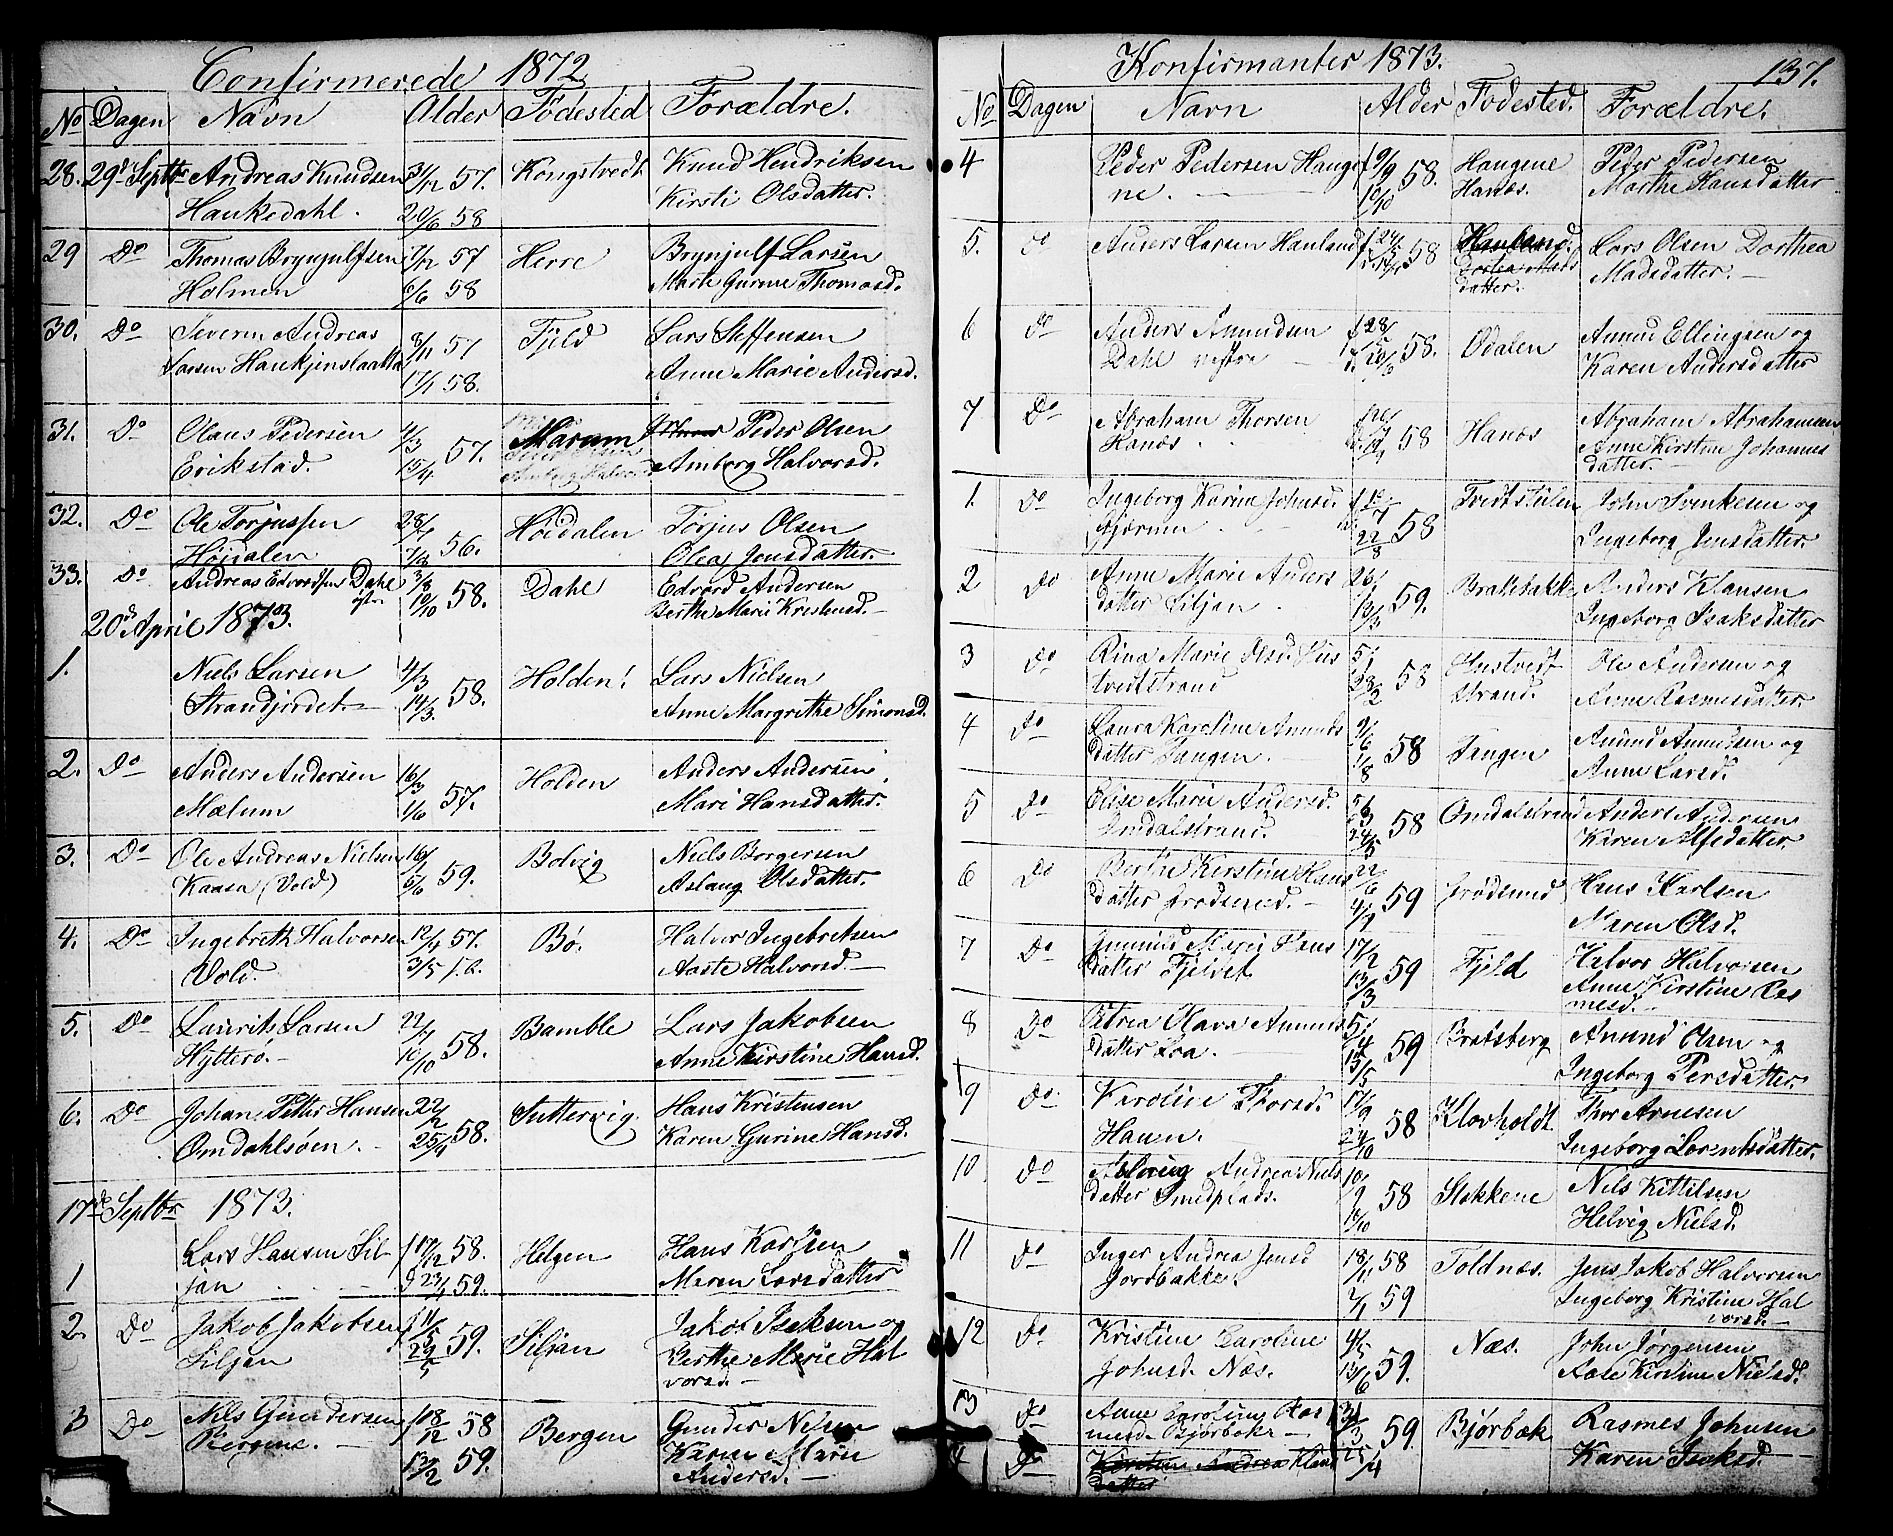 Confirmerede 1872
No Dagen Navn Alder Födested Forældre.
28. 29de Septbr Andreas Knudsen 31/12 57. Kongstvedt Knud Hendriksen
Haukedahl. 20/6 58 Kirsti Olsdatter.
29 Do Thomas Brynjulfsen 7/12 57 Herre Brynjulf Larsen
Holmen 6/6 58 Marte Gurine Thomasd.
30. Do Severin Andreas 8/11 57 Fjeld Lars Steffensen
Larsen 17/1 58. Anne Marie Andersd.
31. Do Olaus Pedersen 4/3 57. Marum Peder Olsen
Erikstad. 13/4 Amberg Halvorsd.
32. Do Ole Torjussen 28/7 56. Höidalen Torjus Olsen
Höjdalen Olea Jensdatter.
33. Do Andreas Edvardsen Dahl 3/8 58. Dahl Edvard Andersen
østre 10/10 Berthe Marie Kristensd.
20de April 1873.
1. Niels Larsen 4/3 58. Holden. Lars Nielsen
Strandjordet. 14/3 Anne Margrethe Simonsd.
2. Do Anders Andersen 16/3 57. Holden Anders Andersen
Mælum 1/6 Mari Hansdatter.
3. Do Ole Andreas Nielsen 16/1 59. Bolvig Niels Borgersen
Kaasa (Vold) 5/6 Aslaug Olsdatter.
4. Do Ingebreth Halvorsen 12/4 57. Bø. Halvor Ingebretsen
Vold. 3/5 Aaste Halvorsd.
5. Do Laurits Larsen 22/7 58. Bamble Lars Jakobsen
Hytterö. 10/10 Anne Kirstine Hansd.
6. Do Johan Petter Hansen 22/2 58. Suttervig Hans Kristensen
Omdahlsøen. 25/4 Karen Gurine Hansd.
17de Septbr 1873.
1 Lars Hansen Sil- f 17/12 58. Helgen Hans Karlsen
jan 23/1 59. Maren Larsdatter
2. Do Jakob Jakobsen 59. Siljan Jakob Isaksen og
Siljan Berthe Marie Hal
vorsd.
3 Do Nils Gundersen 18/12 58 Bergen Gunder Nilsen
Bergene. 13/2 59. Karen Marie
Andersd.
Konfirmanter 1873. 137.
No Dagen Navn Alder Födested. Forældre.
4 Peder Pedersen Hauge f 9/9 58. Haugene Peder Pedersen
ne. 10/10 Hanæs. Marthe Hansdatter
5. do Anders Larsen Hauland 58 Hauland. Lars Olsen Dorthea
Dortea Mads Madsdatter.
datter.
6 do Anders Amundsen f 28/ 58. Odalen Amund Ellingsen og
Dahl vestre Karen Andersdatter
7 Do Abraham Thorsen 58 Hanæs Abraham Abrahamsen
Hanæs Anne Kirstine Johannes
datter.
1. Do Ingeborg Karine Johnsd. 58 Tvedtstulen John Svenkesen og
Bjørnen 22/8 Ingeborg Jensdatter.
2 Do Anne Marie Anders 26/1 59. Bratebakke Anders Klausen
datter Siljan 13/3 Ingeborg Isaksdatter
3 Do Rina Marie Olsd. Hus 5/1 58 Hustvedt Ole Andersen og
tvedtstrand 23/2 strand. Anne Rasmusdatter.
4 Do Laura Karoline Amunds 9/6 58 Tangen Amund Amundsen og
datter Tangen. 1/8 Anne Larsd.
5 Do Elise Marie Andersd. 5/3 58 Omdalstrand Anders Andersen
Omdalstrand. 24/5 Karen Alfsdatter.
6 Do Berthe Kirstine Hans 22/6 59 Frödsund Hans Karlsen
datter Frödsund. 4/9 Maren Olsd.
7 Do Gunnild Marie Hans 17/2 59 Fjeld Halvor Halvorsen
datter Fjeldet 13/3 Anne Kirstine Ras
musd.
8 Do Petrea Olava Amunds 5/4 59 Bratsberg Amund Olsen og
datter Loa. 15/5 Ingeborg Persdatter.
9 Do Karoline Thorsd. 17/9 58 Klovholdt Thor Arnesen
Hauen. 24/10 Ingeborg Lorentsdatter.
10 Do Aslaug Andrea Niels 10/9 58 Stokkene Nils Kittilsen
datter Smedplads. 17/10 Helvig Nielsd.
11 Do Inger Andrea Jensd 18/11 58 Toldnæs. Jens Jakob Halvorsen
Jordbakke. 2/1 59 Ingeborg Kristine Hal
vorsd.
12 Do Kristine Caroline 4/5 59. Næs. John Jörgensen
Johnsd Næs. 13/6 Aase Kirstine Nielsd.
13 Do Anne Caroline Ras 59. Björbæk Rasmus Johnsen
musd. Bjørbæk Karen Isaksd.
14 Do Kirstine Andrea Klaus 25/4
datter